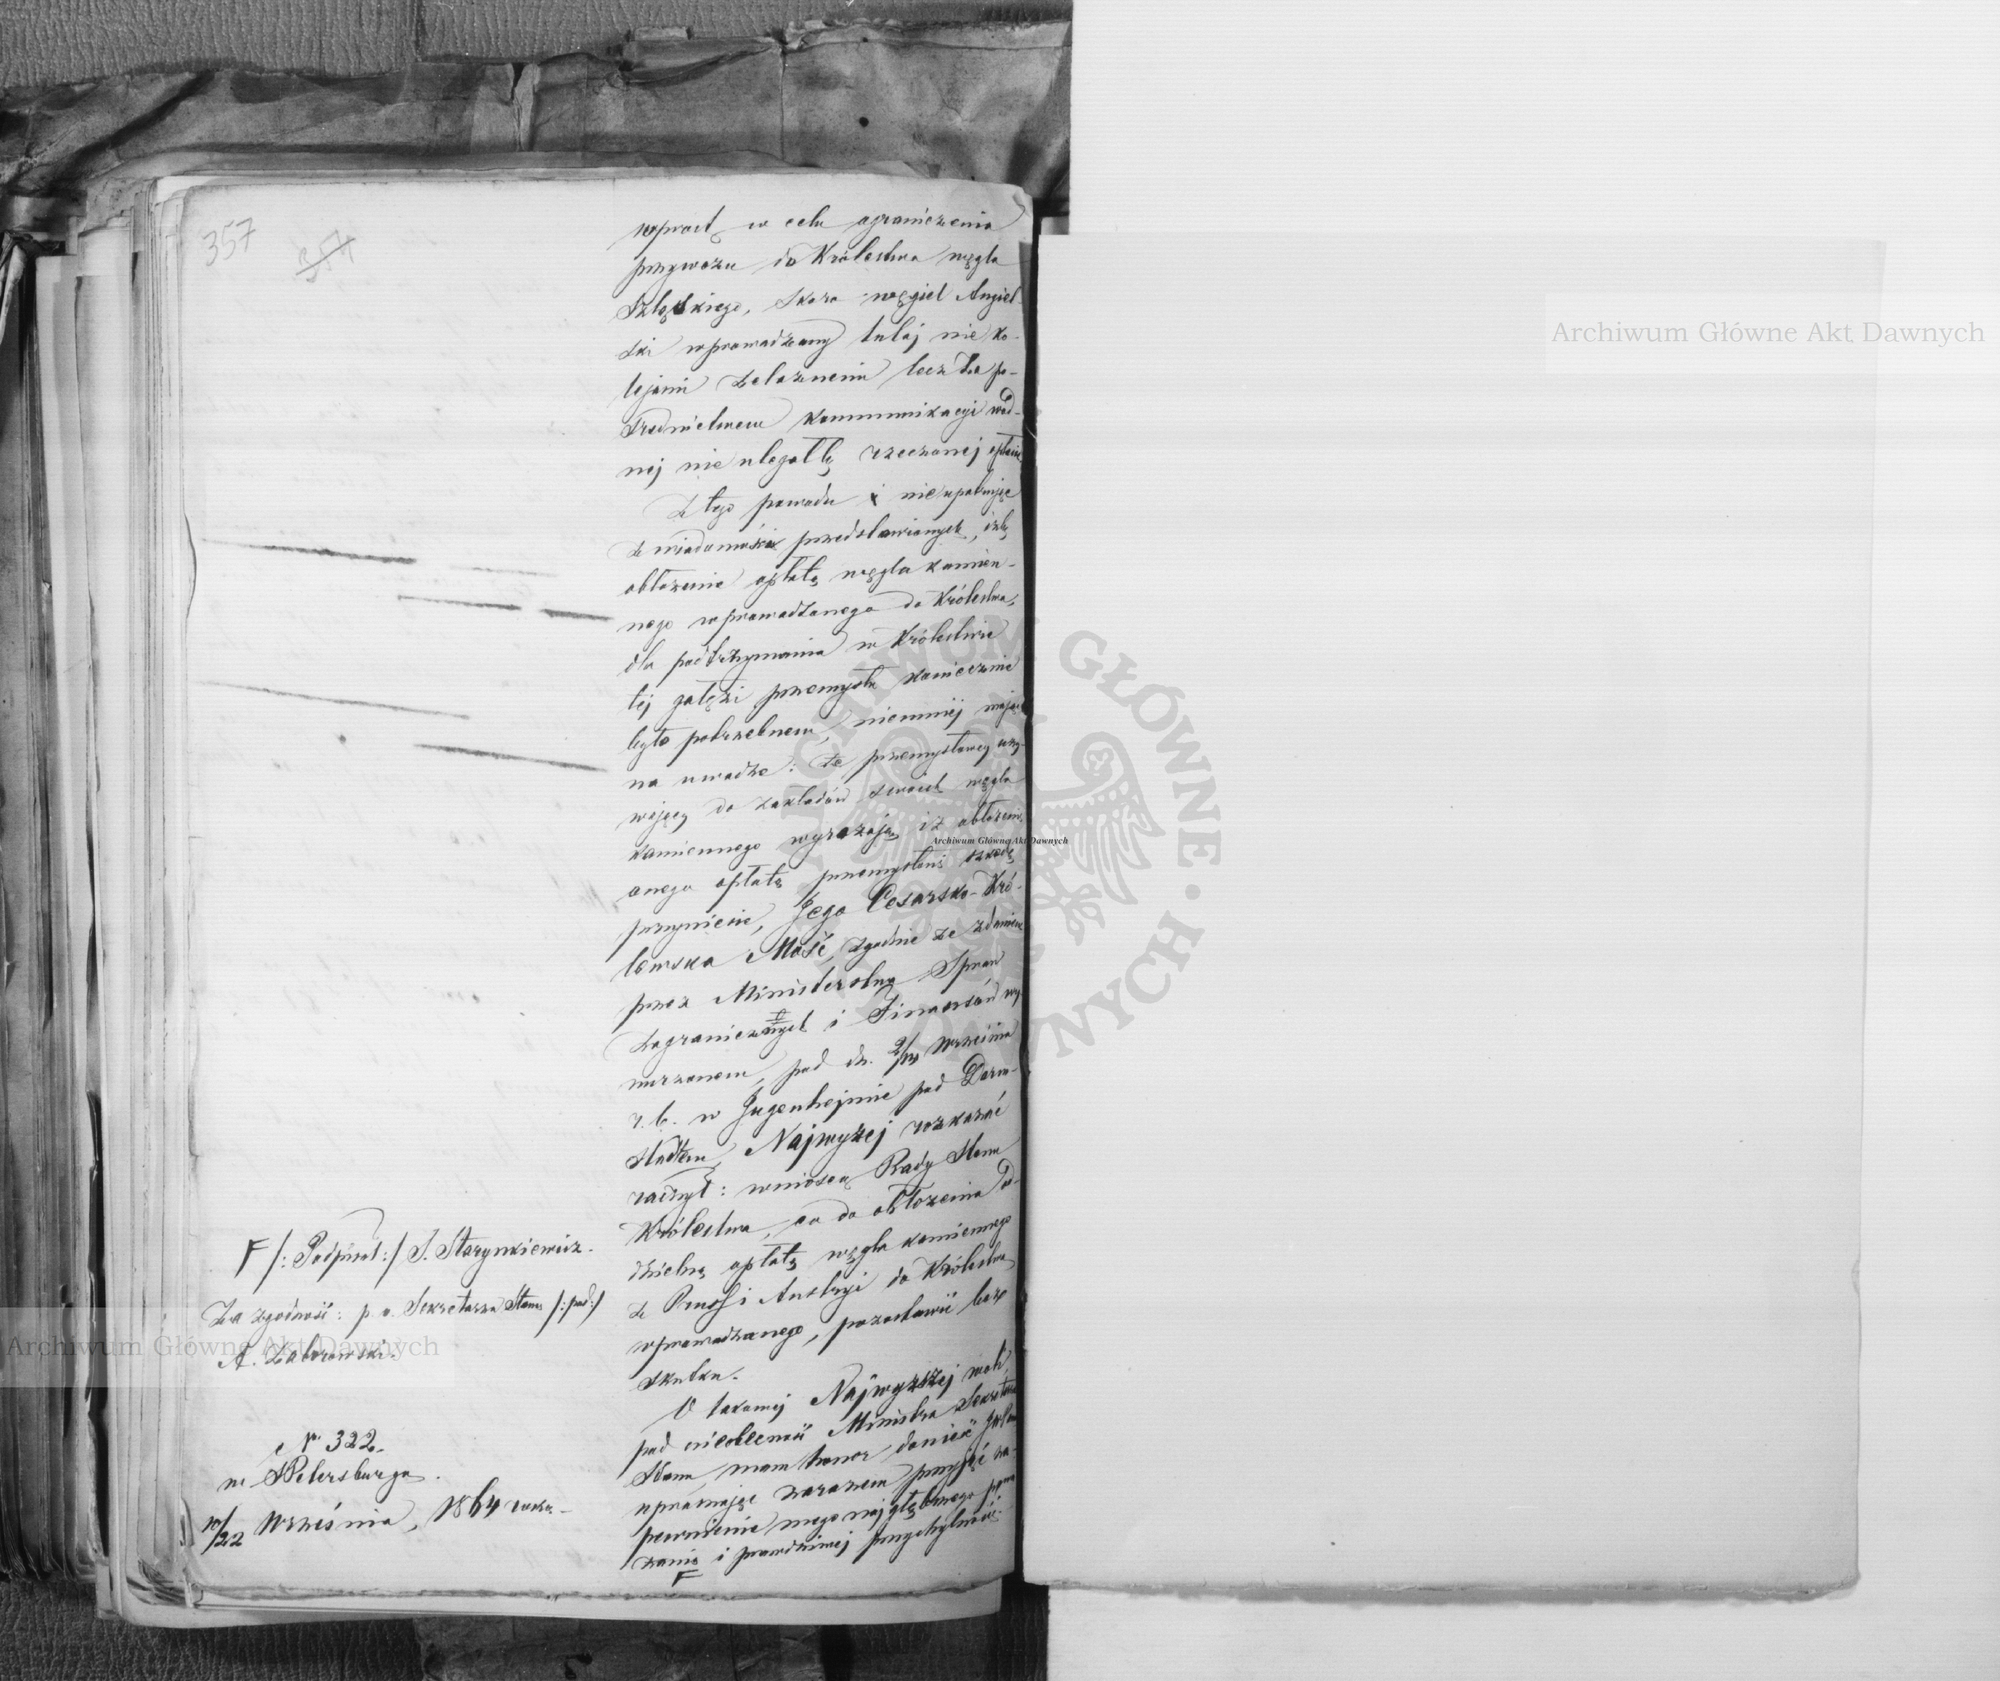 357
357
wprost w celu ograniczenia
przywozu do Królestwa węgla
Szlązkiego, skoro węgiel Angiel-
ski wprowadzany tutaj nie ko-
lejami żelaznemi lecz za po-
średnictwem kommunikacyi wod-
nej nie uległby rzeczonej opłacie
Z tego powodu i nieupatrując
z wiadomości przedstawionych, iżby
obłożenie opłatą węgla kamien-
nego wprowadzanego do Królestwa,
dla podtrzymania w Królestwie
tej gałęzi przemysłu koniecznie
było potrzebnem, niemniej mając
na uwadze: że przemysłowcy uży-
wający do zakładów swoich węgla
kamiennego wyrażają, iż obłożenie
onego opłatą przemysłowi szkodę
przyniesie, Jego Cesarsko-Kró-
lewska Mość, zgodnie ze zdaniem
przez Ministerstwa Spraw
Zagranicznych i Finansów wy-
nurzonem, pod dn. 2/14 Września
r. b. w Jugenheimie pod Darm-
stadtem, Najwyżej rozkazać
raczył: wniosek Rady Stanu
Królestwa, co do obłożenia od-
dzielną opłatą węgla kamiennego
z Pruss i Austryi do Królestwa
wprowadzanego, pozostawić bez
skutku.
O takowej Najwyższej woli,
pod nieobecność Ministra Sekretarza
Stanu, mam honor donieść
upraszając zarazem przyjąć za-
pewnienie mego najgłębszego powa
żania i prawdziwej przychylności.
F
F /: Podpisał :/ S. Starynkiewicz.
Za zgodność: p. o. Sekretarza Stanu /: pod :/
A. Zaborowski.
N. 322.
w S Petersburgu.
10/22 Września, 1864 roku.
Archiwum Główne Akt Dawnych
Archiwum Główne Akt Dawnych
Archiwum Główne Akt Dawnych
ARCHIWUM GŁÓWNE · AKT DAWNYCH